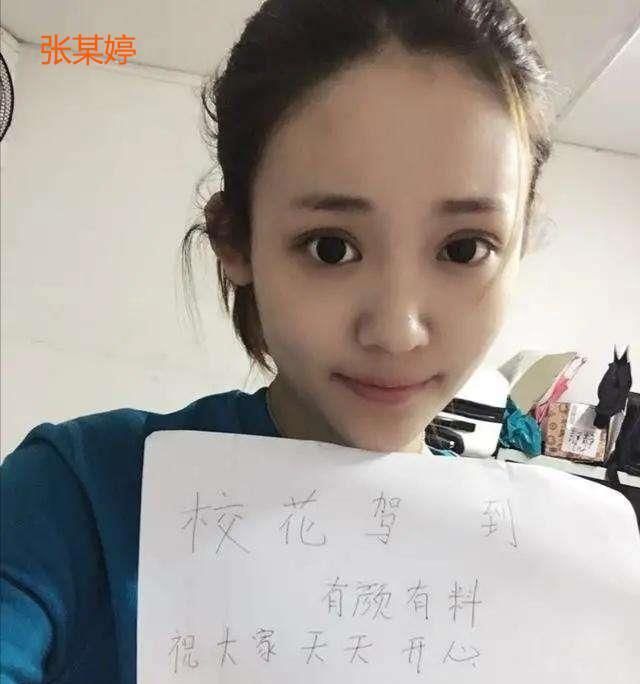 张某婷
校花驾到
有颜有料
祝大家天天开心